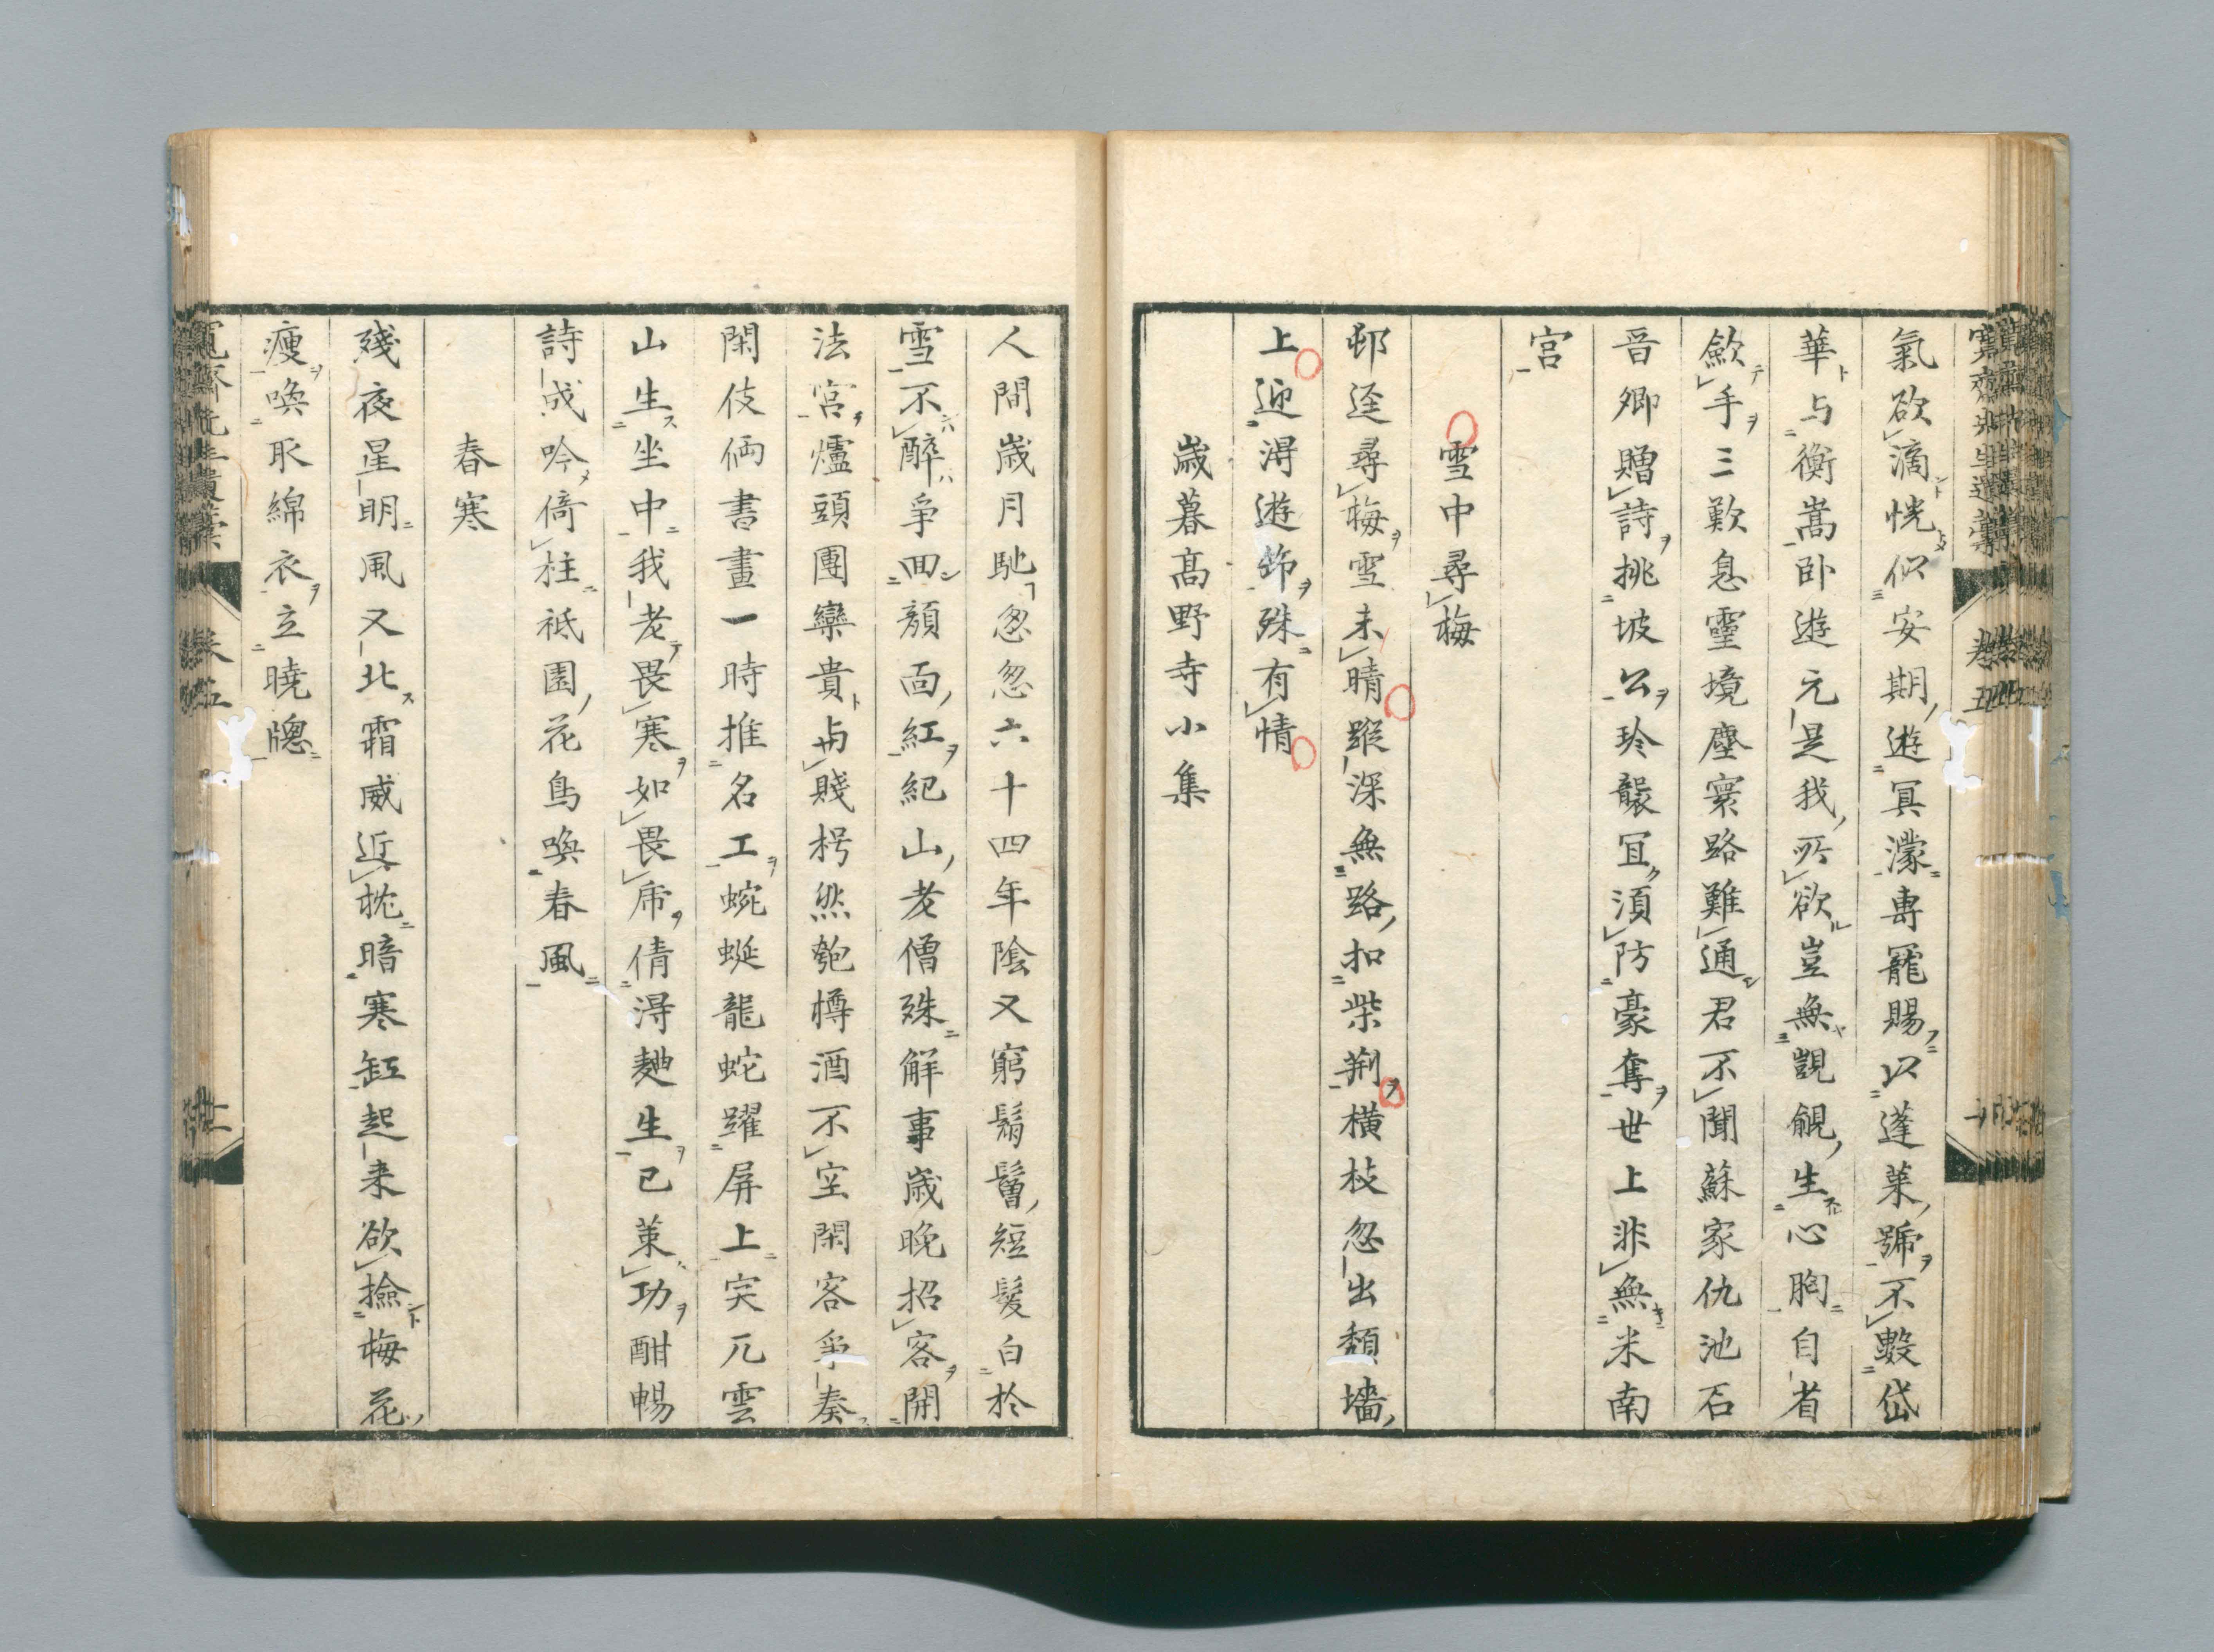 氣欲滴恍似安期遊冥濛專寵賜以蓬萊號不數岱
華与衡嵩卧遊元是我所欲豈無覬覦生心胸自省
斂手三歎息靈境塵寰路難通君不聞蘇家仇池石
晉卿贈詩挑坡公珍襲冝須防豪奪世上非無米南
宮
雪中尋梅
邨逕尋梅雪未晴蹤深無路扣柴荆橫枝忽出頽墻
上迎淂遊筇殊有情
歳暮高野寺小集
人間歳月馳忽忽六十四年陰又窮鬅鬙短髮白於
雪不醉爭回顏面紅紀山老僧殊解事歳晚招客開
法宮爐頭團欒貴与賤枵然匏樽酒不空閑客爭奏
閑伎倆書畫一時推名工蜿蜒龍蛇躍屏上突兀雲
山生坐中我老畏寒如畏虎倩淂麯生已策功酣暢
詩成吟倚柱祗園花鳥喚春風
春寒
殘夜星明風又北霜威近枕暗寒缸起来欲撿梅花
瘦喚取綿衣立曉牕